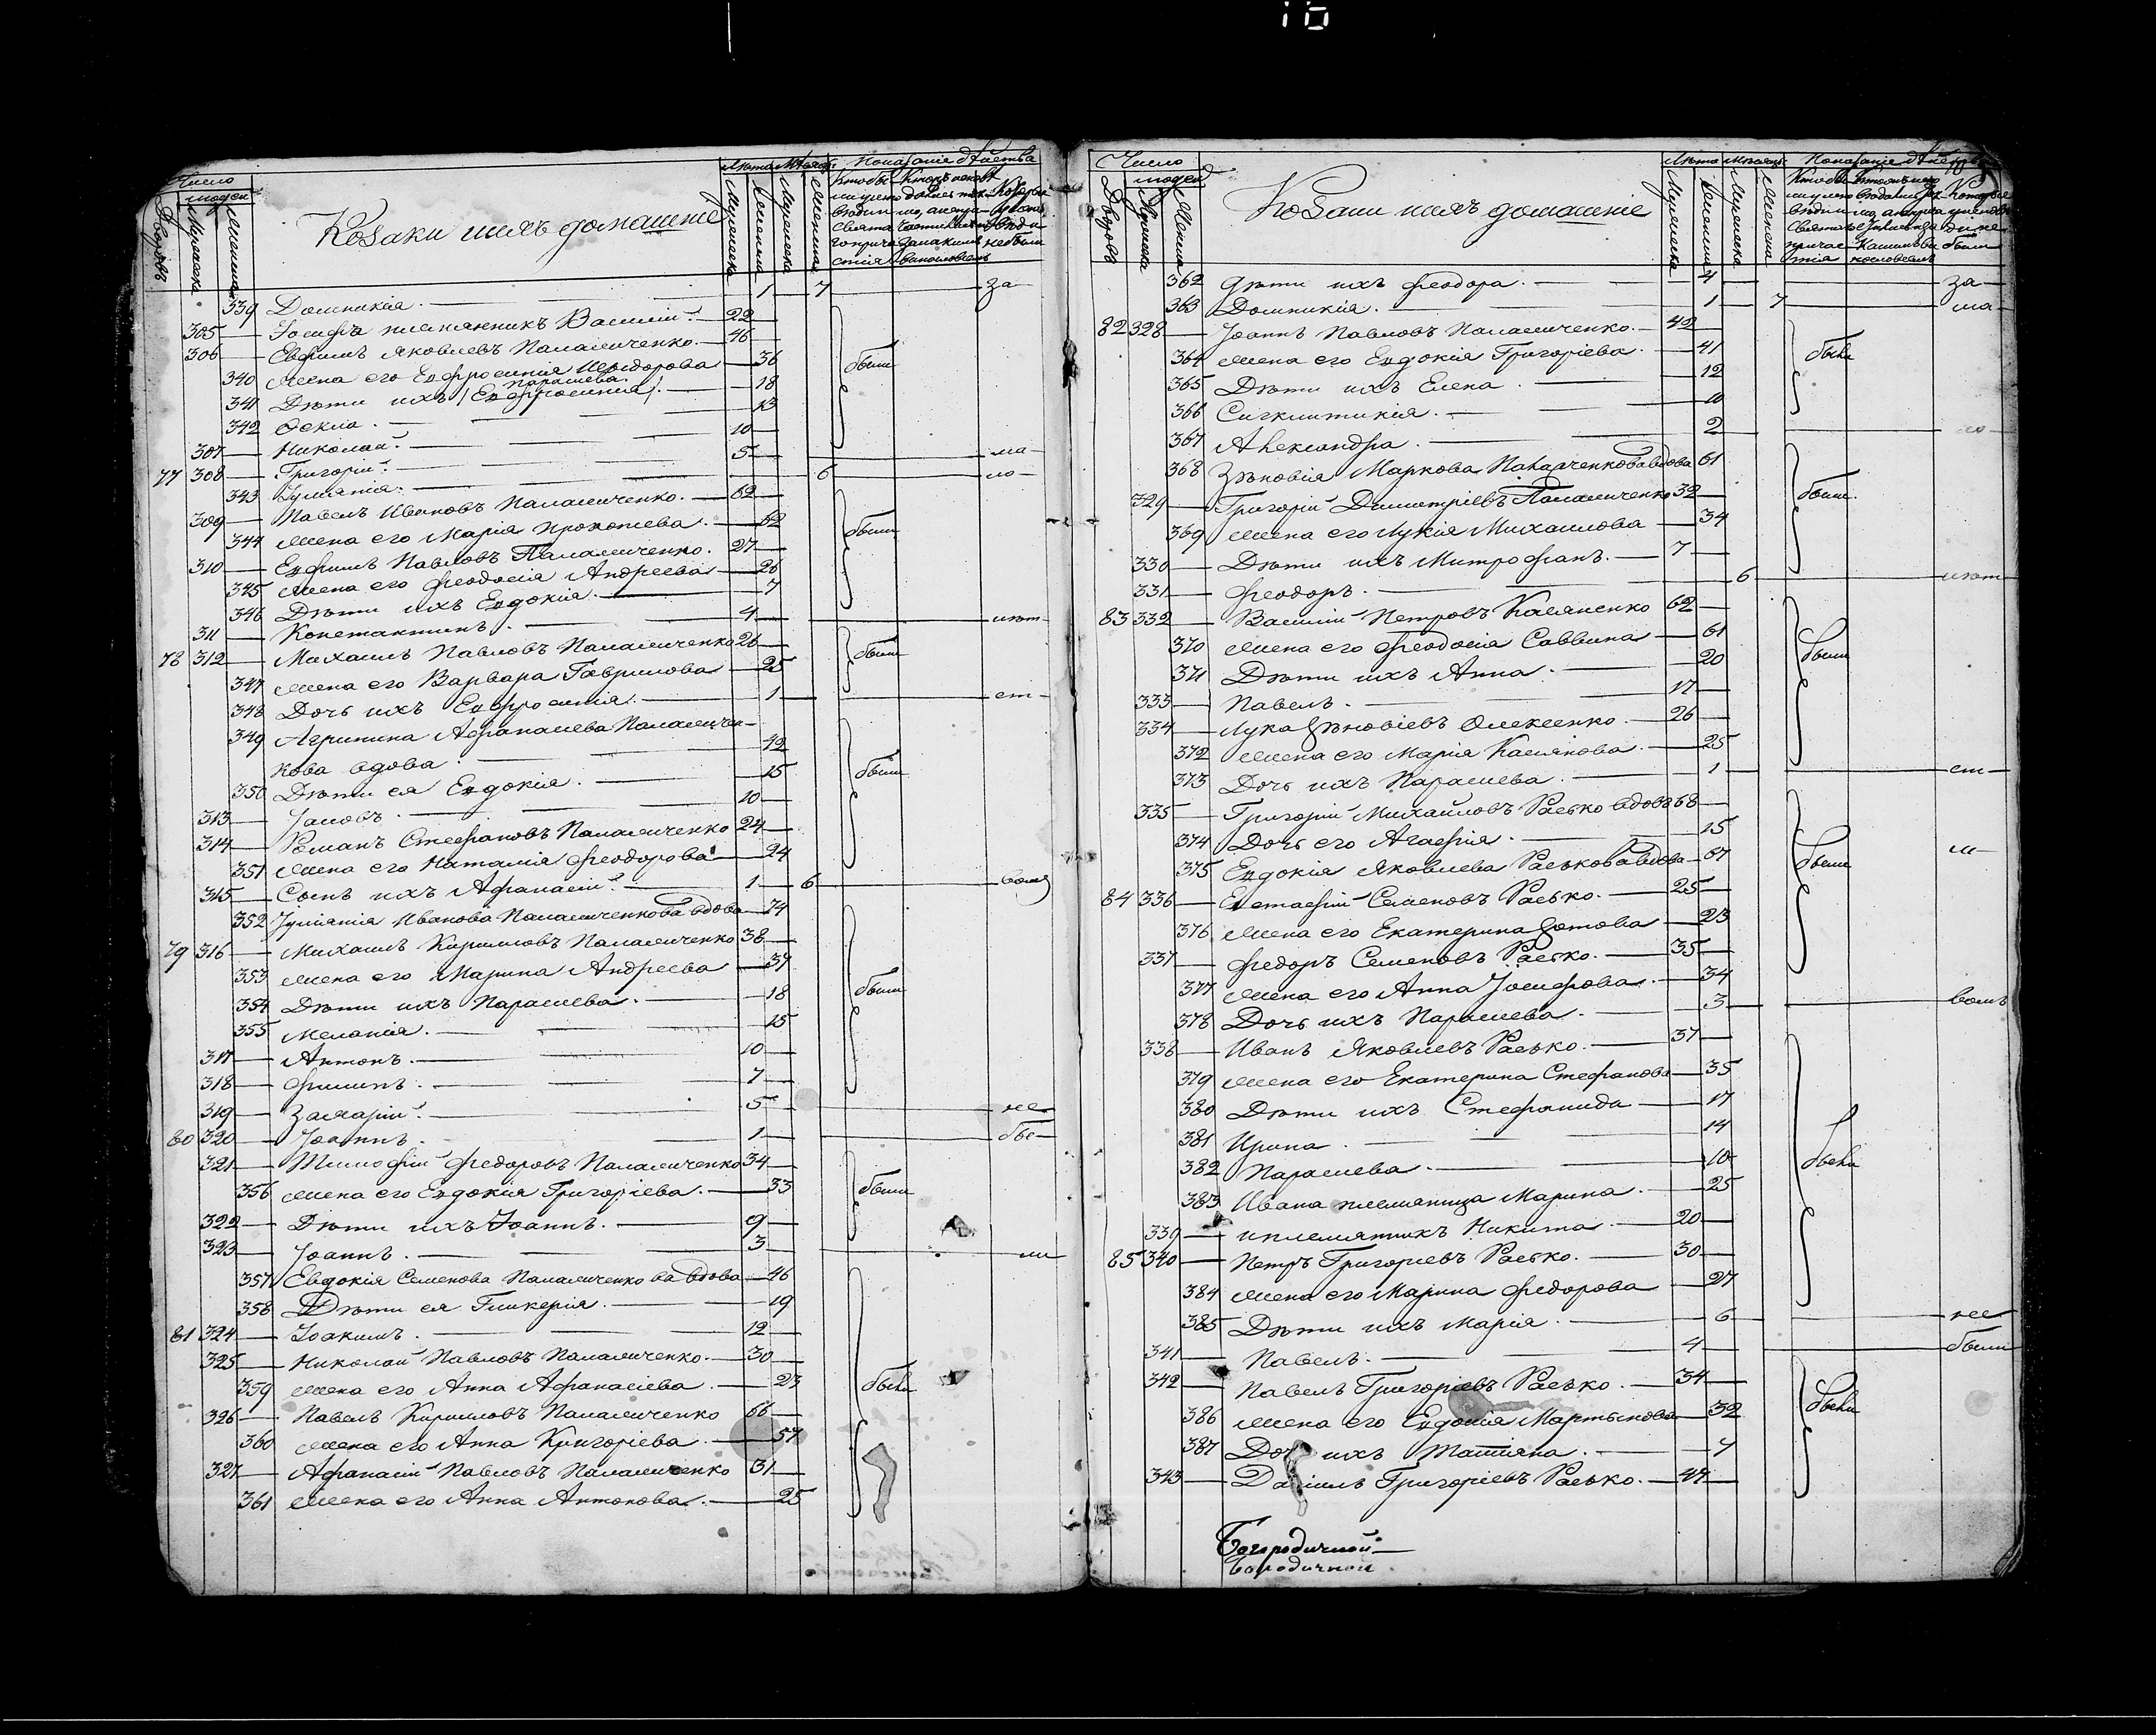 Число
людей
Дворовъ
Мужеска
Женска
Козаки ихъ домашніе
Лѣта
Мужеска
Женска
Мужеска
Женска
Показаніе дѣйства
339 Домникія. 1 7 за
305 Іосифа племянникъ Василій. 22
306 Евфимъ Яковлевъ Паламиченко. 46
340 Жена его Евфросинія Исидорова 36 были
Параскева
341 Дѣти ихъ (Евфросинія) 18
342 Ѳекла. 13
307 Николай. 10
77 308 Григорій. 5 ма
343 Іуліанія. 6 ло
309 Павелъ Ивановъ Паламиченко. 62
344 Жена его Марія Прокопіева. 62 были
310 Евфимъ Павловъ Паламиченко. 27
345 Жена его Феодосія Андреева 26
346 Дѣти ихъ Евдокія. 7
311 Константинъ. 4 лѣт
78 312 Михаилъ Павловъ Паламиченко 26 были
347 Жена его Варвара Гаврилова 25
348 Дочь ихъ Евфросинія. 1 ст
349 Агрипина Афанасіева Паламичен-
кова вдова 42
350 Дѣти ея Евдокія. 15 были
313 Іаковъ. 10
314 Романъ Стефановъ Паламиченко 24
351 Жена его Наталія Феодорова 24
315 Сынъ ихъ Афанасій. 1 6
352 Іуліанія Иванова Паламиченкова вдова 74
79 316 Михаилъ Кириловъ Паламиченко 38
353 Жена его Марина Андреева 37
354 Дѣти ихъ Параскева. 18 были
355 Меланія. 15
317 Антонъ. 10
318 Филипъ. 7
319 Захарій. 5 не
80 320 Іоаннъ. 1 бы
321 Тимофій Федоровъ Паламиченко 34
356 Жена его Евдокія Григоріева. 33 были
322 Дѣти ихъ Іоаннъ. 9
323 Іоаннъ. 3 ли
357 Евдокія Семенова Паламиченкова вдова 46
358 Дѣти ея Гликерія. 19
81 324 Іоакимъ. 12
325 Николай Павловъ Паламиченко. 30
359 Жена его Анна Афанасіева. 23 были
326 Павелъ Кириловъ Паламиченко 66
360 Жена его Анна Григоріева. 57
327 Афанасій Павловъ Паламиченко 31
361 Жена его Анна Антонова. 25
Число
людей
Дворовъ
Мужеска
Женска
Козаки ихъ домашніе
Лѣта
Мужеска
Женска
Мужеска
Женска
Показаніе дѣйства
362 Дѣти ихъ Феодора. 4 за
363 Домникія. 1 7 ма
82 328 Іоаннъ Павловъ Паламиченко. 42
364 Жена его Евдокія Григоріева. 41 были
365 Дѣти ихъ Елена. 12
366 Сигклитикія. 10
367 Александра. 2 ло
368 Зѣновія Маркова Паламченкова вдова 61
329 Григорій Димитріевъ Паламиченко 32 были.
369 Жена его Лукія Михаилова 34
330 Дѣти ихъ Митрофанъ. 7
331 Феодоръ. 6 лѣт
83 332 Василій Петровъ Касяненко 62
370 Жена его Феодосія Саввина 61
371 Дѣти ихъ Анна. 20 были
333 Павелъ. 17
334 Лука Зѣновіевъ Олексенко. 26
372 Жена его Марія Касянова. 25
373 Дочь ихъ Параскева. 1 ст
335 Григорій Михайловъ Расько вдовъ 68
374 Дочь его Агафія. 15
375 Евдокія Яковлева Раськова вдова 67 были
84 336 Евстафій Семеновъ Расько. 25
376 Жена его Екатерина Зотова 23
337 Федоръ Семеновъ Расько. 35
377 Жена его Анна Іосифова. 34
378 Дочь ихъ Параскева. 3
338 Иванъ Яковлевъ Расько. 37
379 Жена его Екатерина Стефанова 35
380 Дѣти ихъ Стефанида 17
381 Ирина. 14
382 Параскева. 10 были
383 Ивана племяница Марина. 25
339 и племянникъ Никита. 20
85 340 Петръ Григоріевъ Расько. 30
384 Жена его Марина Федорова 27
385 Дѣти ихъ Марія. 6 не
341 Павелъ. 4 были
342 Павелъ Григоріевъ Расько. 34
386 Жена его Евдокія Мартынова 32 были
387 Дочь ихъ Татіяна. 7
343 Даніилъ Григоріевъ Расько. 47
Богородичной
Бородичной